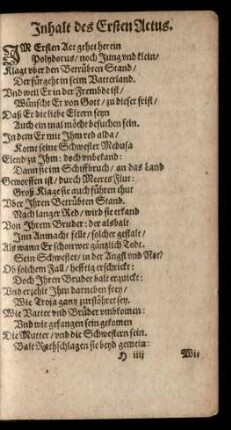 Inhalt des Ersten Actus.
IM Ersten Act gehet herein
Polydorus / noch Jung vnd klein /
Klagt vber den Betrübten Stand /
Der für geht in seim Vatterland.
Vnd weil Er in der Frembde ist /
Wünscht Er von Gott / zu dieser frist /
Daß Er die liebe Eltern seyn
Auch ein mal möcht besuchen fein.
In dem Er mit Ihm red alda /
Komt seine Schwester Medusa
Elend zu Ihm: doch vnbekand:
Dann sie im Schiffbruch / an das Land
Geworffen ist / durch Meeres Flut:
Groß Klag sie auch führen thut
Vber Ihren Betrübten Stand.
Nach langer Red / wird sie erkand
Von Ihrem Bruder: der alsbalt
Inn Anmacht fellt / solcher gestalt /
Als wann Er schon wer gäntzlich Todt.
Sein Schwester / in der Angst vnd Not /
Ob solchem Fall / hefftig erschrickt:
Doch Ihren Bruder balt erquickt:
Vnd erzehlt Ihm darneben frey /
Wie Troja gantz zurstöhret sey.
Wie Vatter vnd Brüder vmbkomen:
Vnd wie gefangen sein genomen
Die Mutter / vnd die Schwestern sein.
Balt Rathschlagen sie beyd gemein:
Wie